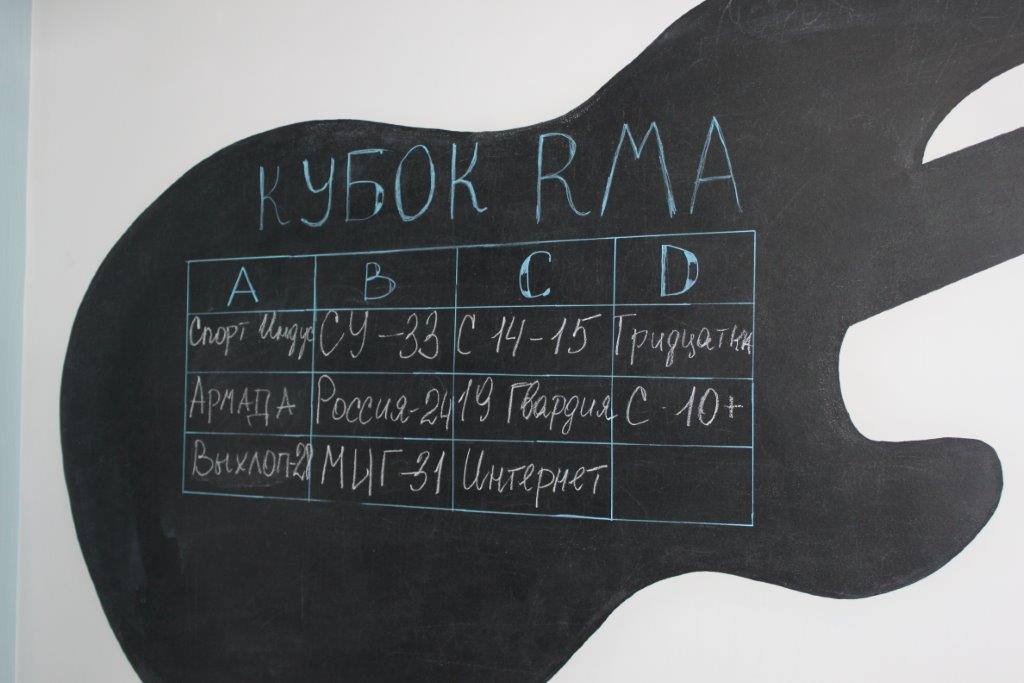 КУБОК RMA
A B C D
Спорт Индус СУ-33 С 14-15 Тридцатка
АРМАДА Россия-24 19 Гвардия С-10+
Выхлоп-28 МИГ-31 Интернет